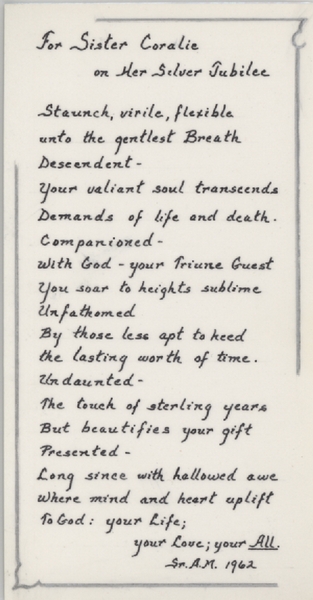 For Sister Coralie
on Her Silver Jubilee
Staunch, virile, flexible
unto the gentlest Breath
Descendent -
Your valiant soul transcends
Demands of life and death.
Companioned -
With God - your Triune Guest
You soar to heights sublime
Unfathomed
By those less apt to heed
the lasting worth of time.
Undaunted -
The touch of sterling years
But beautifies your gift
Presented -
Long since with hallowed awe
Where mind and heart uplift
To God: your Life;
your Love; your All.
Sr. A.M. 1962